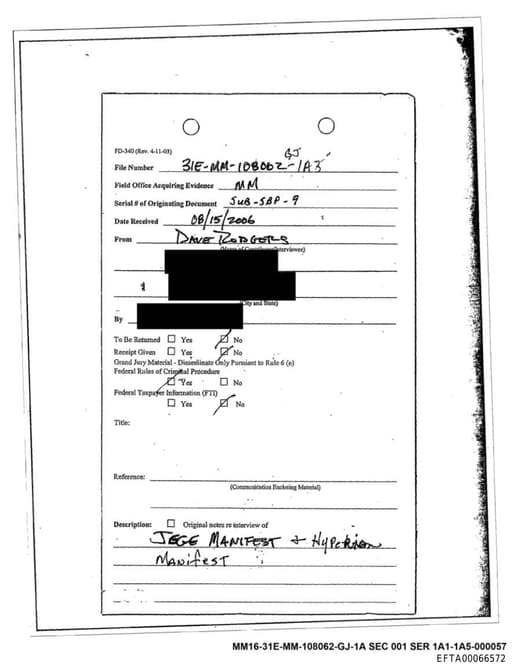 FD-340 (Rev. 4-11-03)
GJ
File Number 31E-MM-108062-1A3
Field Office Acquiring Evidence MM
Serial # of Originating Document SUB-SBP-9
Date Received 08/15/2006
From DAVE RODGERS
(City and State)
By
To Be Returned Yes No
Receipt Given Yes No
Grand Jury Material - Disseminate Only Pursuant to Rule 6 (e)
Federal Rules of Criminal Procedure
Yes No
Federal Taxpayer Information (FTI)
Yes No
Title:
Reference:
(Communication Enclosing Material)
Description: Original notes re interview of
JEGE MANIFEST + Hyperion
MANIFEST
MM16-31E-MM-108062-GJ-1A SEC 001 SER 1A1-1A5-000057
EFTA00066572